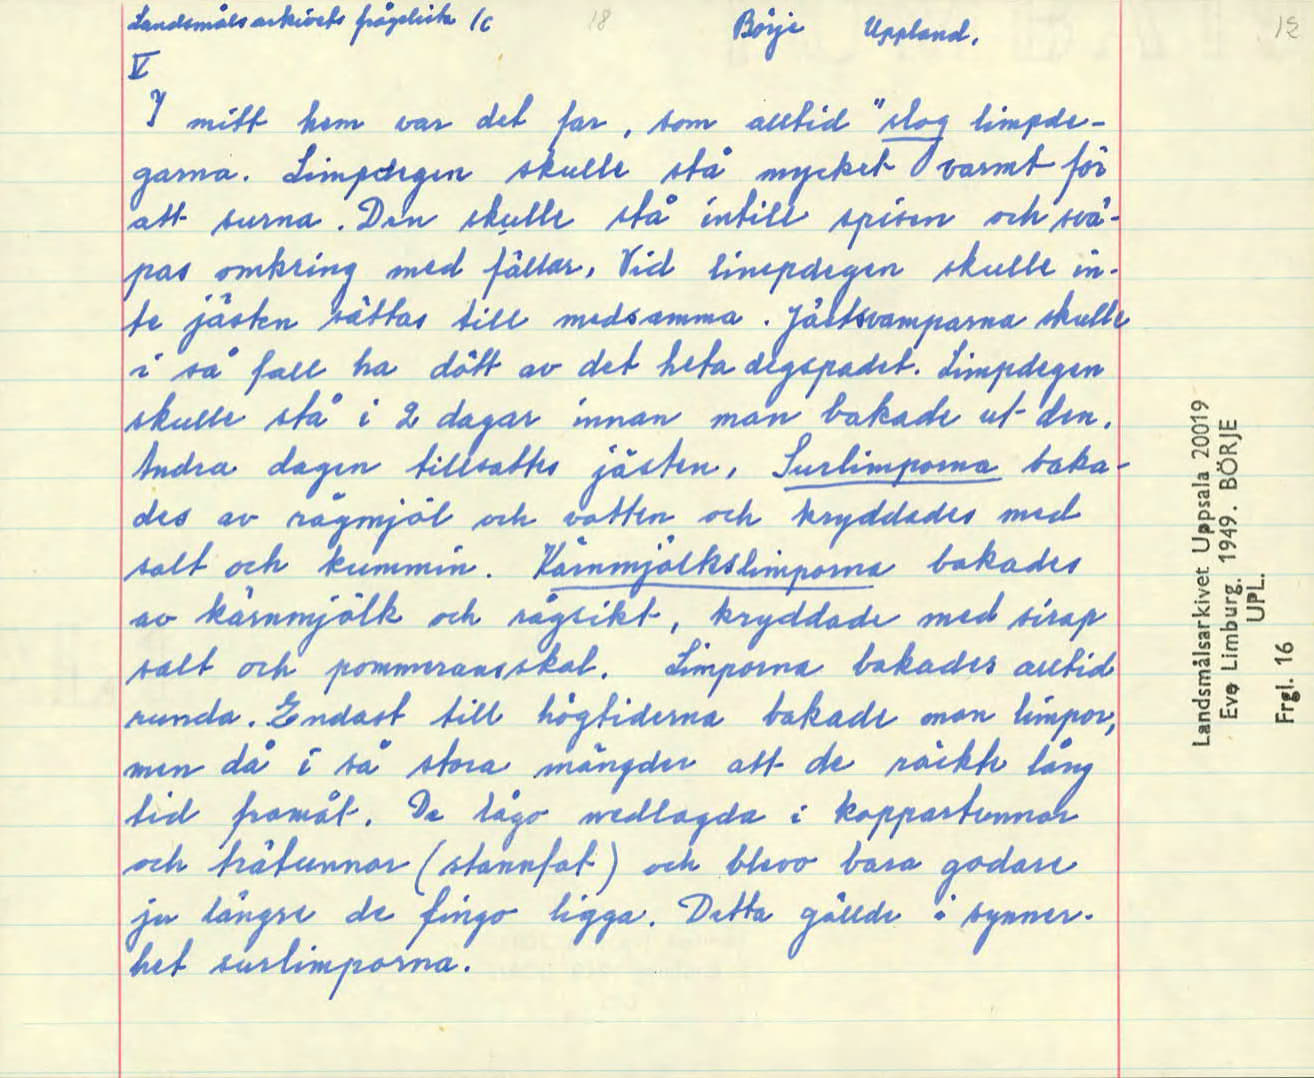 Landsmålsarkivets frågelista 1c 18 Börje Uppland. 18
V
I mitt hem var det far, som alltid "slog limpde-
garna. Limpdegen skulle stå mycket varmt för
att surna. Den skulle stå intill spisen och svä-
pas omkring med fällar. Vid limpdegen skulle in-
te jästen sättas till medsamma. Jästsvamparna skulle
i så fall ha dött av det heta degspadet. Limpdegen
skulle stå i 2 dagar innan man bakade ut den.
Andra dagen tillsattes jästen. Surlimporna baka-
des av rågmjöl och vatten och kryddades med
salt och kummin. Kärnmjölkslimporna bakades
av kärnmjölk och rågsikt, kryddade med sirap
salt och pommeransskal. Limporna bakades alltid
runda. Endast till högtiderna bakade man limpor,
men då i så stora mängder att de räckte lång
tid framåt. De lågo nedlagda i koppartunnor
och trätunnor (stannfat) och blevo bara godare
ju längre de fingo ligga. Detta gällde i synner-
het surlimporna.
Landsmålsarkivet Uppsala 20019
Eva Limburg. 1949. BÖRJE
UPL.
Frgl. 16